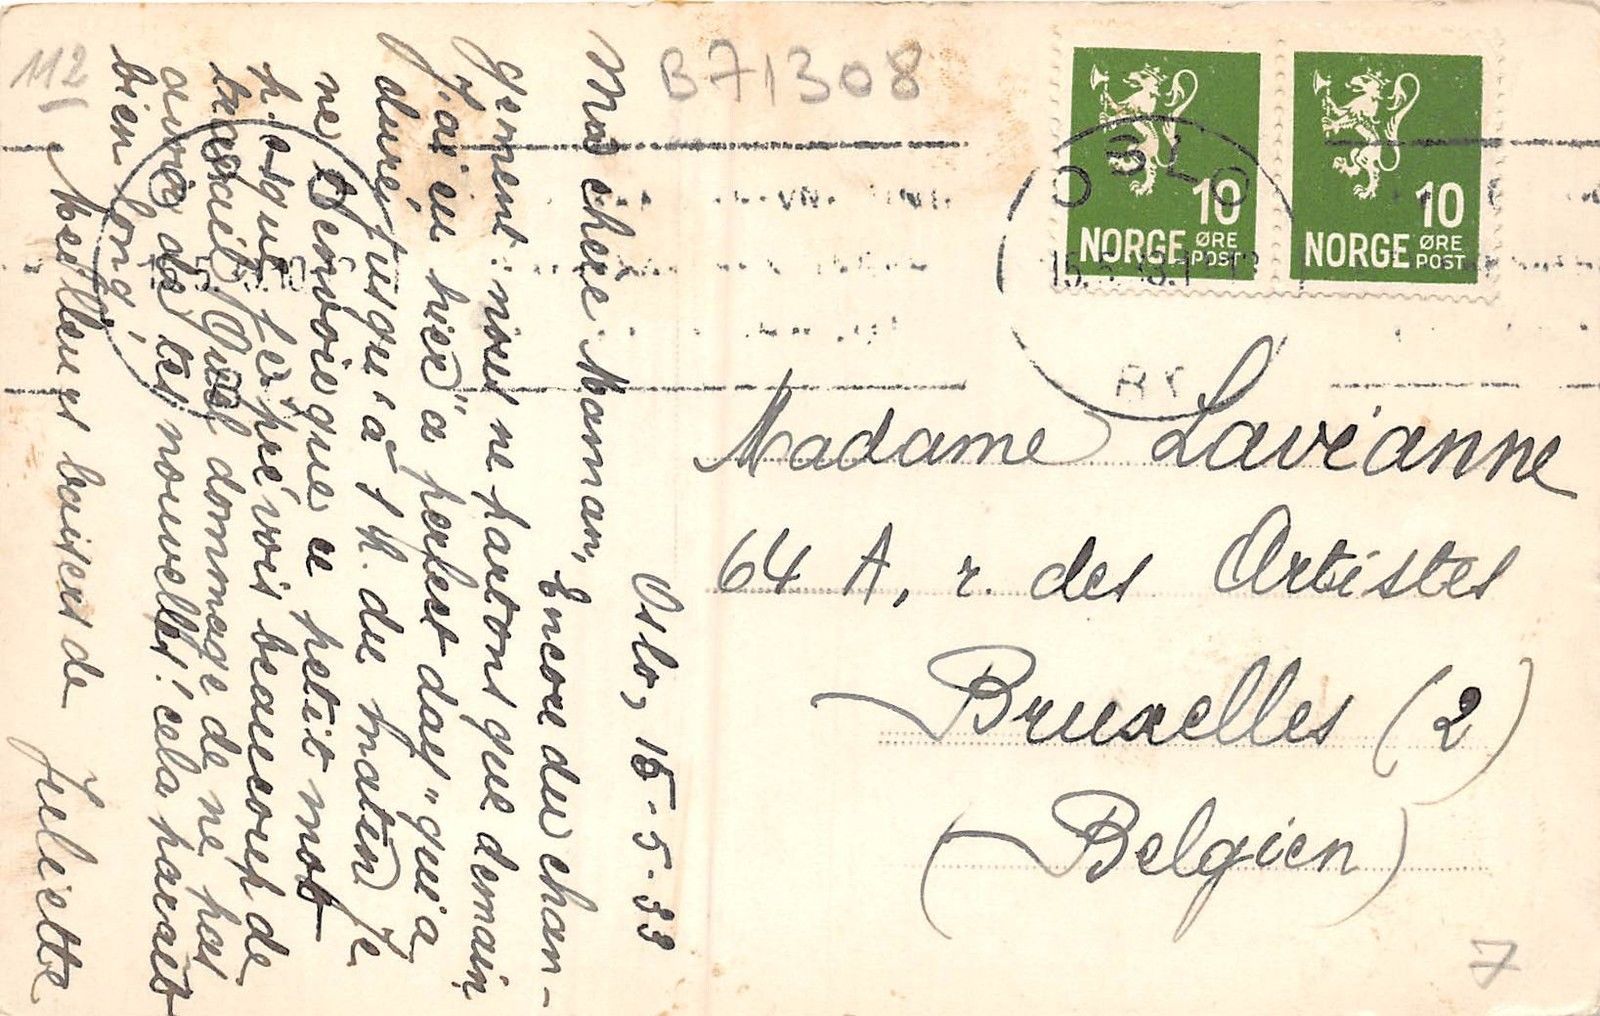 112
B71308
Oslo, 15-5-33
Ma chère Maman,
Encore du chan-
gement: nous ne partons que demain
J'ai eu hier "a perfect day" qui a
duré jusqu'à 1 h. du matin! Je
ne t'envoie que ce petit mot
p.c.q. je prévois beaucoup de
travail. Quel dommage de ne pas
avoir de tes nouvelles! cela paraît
bien long!
Meilleurs baisers de
Juliette
10
NORGE ØRE
POST
10
NORGE ØRE
POST
OSLO
BR
Madame Lavianne
64 A, r. des Artistes
Bruxelles (2)
(Belgien)
7